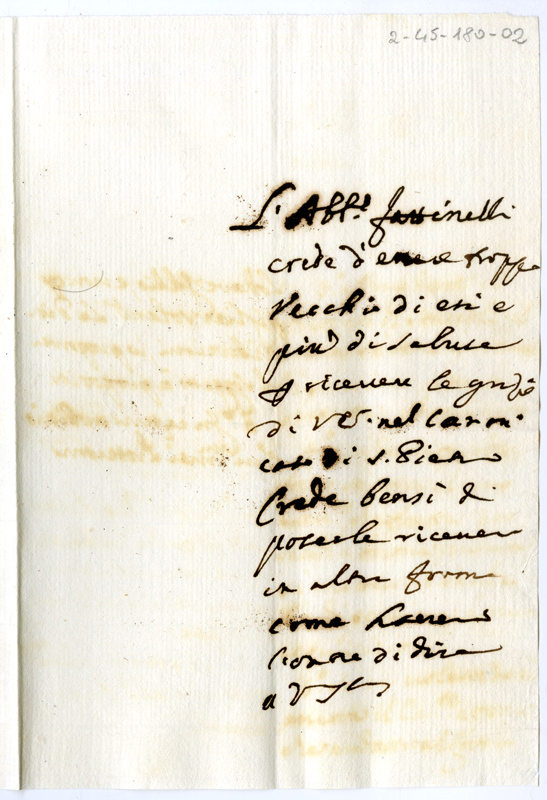 2-45-180-02
L'Abb.e Fattinelli
crede d'essere troppo
vecchio di età e
più di salute
p ricevere le grazie
di VS. nel Canoni
cato di S. Pietro
Crede bensì di
poterle ricevere
in altra forma
come haverà
l'onore di dire
a VS